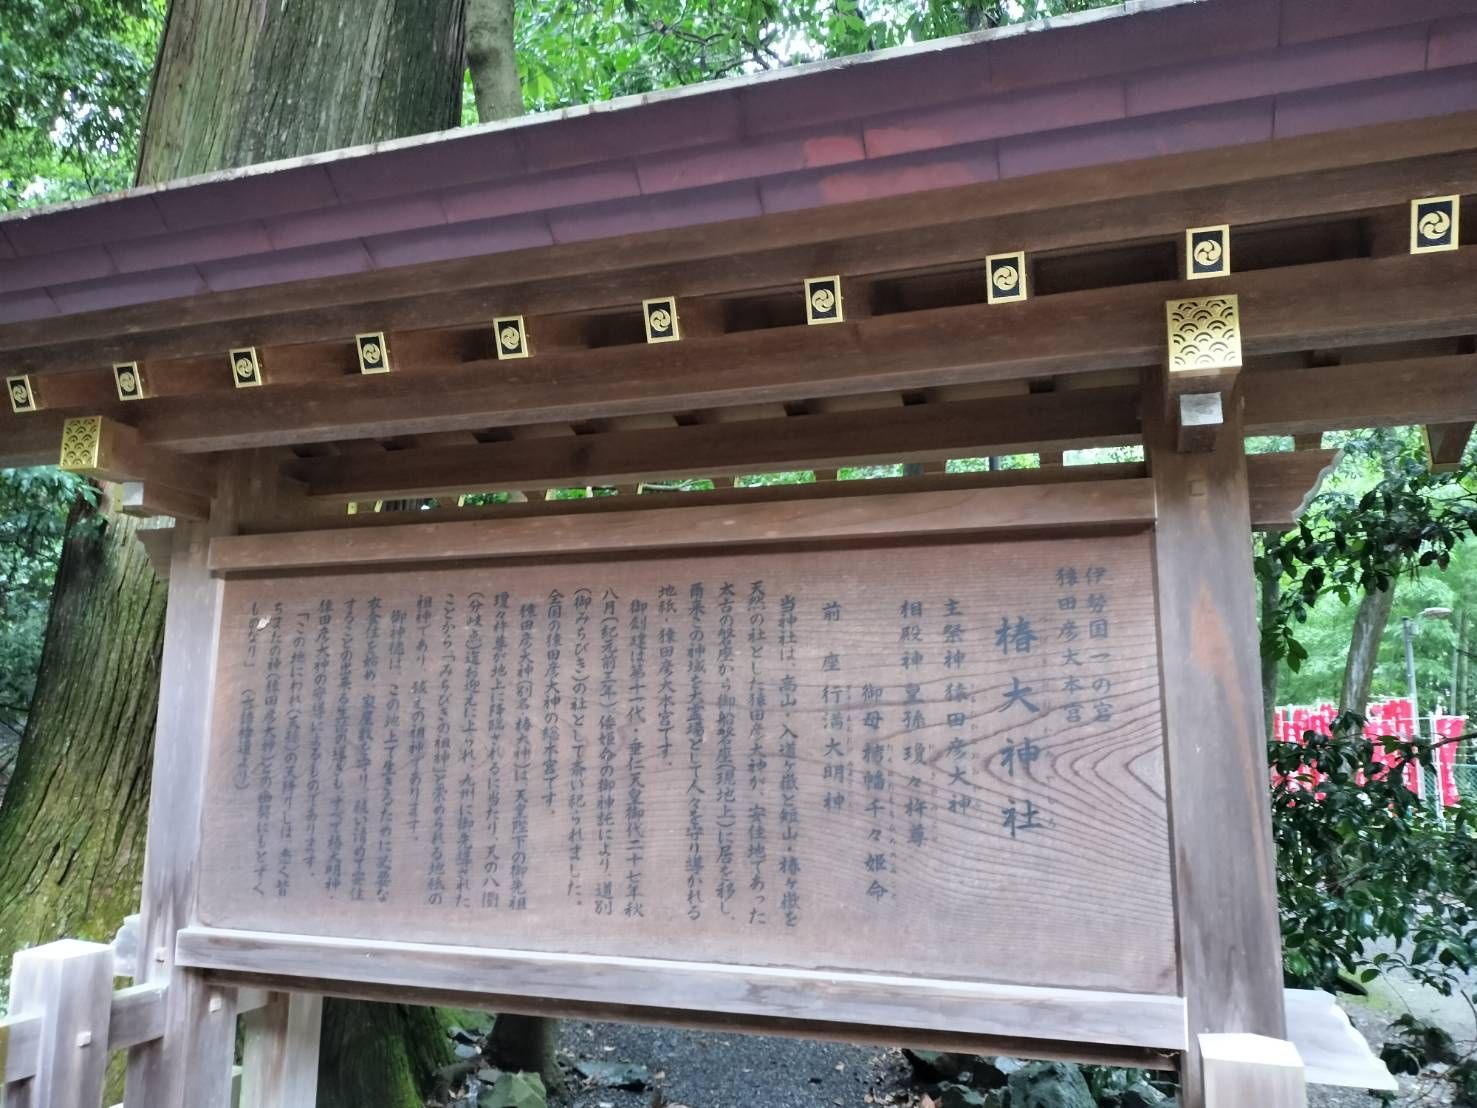 伊勢国一の宮
猿田彦大本宮
椿大神社
主祭神 猿田彦大神
相殿神 皇孫瓊々杵尊
御母 栲幡千々姫命
前座 行満大明神
当神社は、高山・入道ヶ嶽と短山・椿ヶ嶽を
天然の社とした猿田彦大神が、安住地であった
太古の磐座から御船磐座(現地上)に居を移し、
爾来この神域を大霊場として人々を守り導かれる
地祇・猿田彦大本宮です。
御創建は第十一代・垂仁天皇御代二十七年秋
八月(紀元前三年)倭姫命の御神託により、道別
(御みちびき)の社として斎い祀られました。
全国の猿田彦大神の総本宮です。
猿田彦大神(別名 椿大神)は、天皇陛下の御先祖
瓊々杵尊が地上に降臨されるに当たり、天の八衢
(分岐点)迄お迎えに上られ、九州に御先導された
ことから「みちびきの祖神」と崇められる地祇の
祖神であり、祓えの祖神であります。
御神徳は、この地上で生きるために必要な
衣食住を始め、家屋敷を守り、祓い清め、安住
することの出来る生活の導きも、すべて椿大明神・
猿田彦大神の守導によるものであります。
「この地にわれ(天孫)の天降りしは、悉く皆
ちまたの神(猿田彦大神)との幽契にもとずく
ものなり」